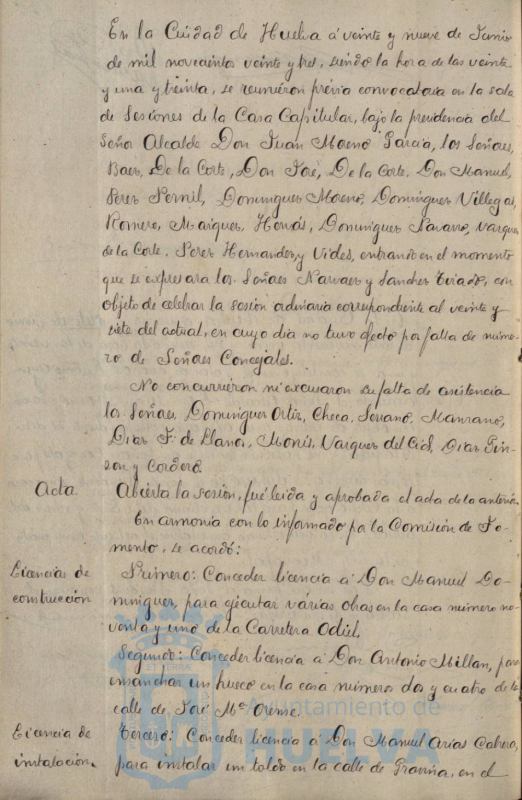 En la Ciudad de Huelva á veinte y nueve de Junio
de mil novecientos veinte y tres, siendo la hora de las veinte
y una y treinta, se reunieron prévia convocatoria en la sala
de Sesiones de la Casa Capitular, bajo la presidencia del
Señor Alcalde Don Juan Moreno Garcia, los Señores,
Baer, De la Corte, Don José, De la Corte, Don Manuel,
Perez Pernil, Dominguez Moreno, Dominguez Villegas,
Romero, Maiquez, Dominguez Navarro, Vazquez
de la Corte, Perez Hernandez, y Vides, entrando en el momento
que se expresara los Señores Narvaez y Sanchez Tirado, con
objeto de celebrar la sesión ordinaria correspondiente al veinte y
siete del actual, en cuyo dia no tuvo efecto por falta de núme-
ro de Señores Concejales.
No concurrieron ni escusaron su falta de asistencia
los Señores, Dominguez Ortiz, Checa, Serrano, Manzano,
Diaz F. de Llanos, Monis, Vazquez del Cid, Diaz Pin-
zon y Cordero.
Acta Abierta la sesión, fué leida y aprobada el acta de la anterior.
En armonia con lo informado por la Comisión de Fo-
mento, se acordó:
Licencias de Primero: Conceder licencia á Don Manuel Do-
construcción minguez, para ejecutar várias obras en la casa número no-
venta y uno de la Carretera Odiel.
Segundo: Conceder licencia á Don Antonio Millan, para
ensanchar un hueco en la casa números dos y cuatro de la
calle de José Mª
Licencia de Tercero: Conceder licencia á Don Manuel Arias Cabera,
instalación. para instalar un toldo en la calle de Gravina, en el
Ayuntamiento de
HUELVA